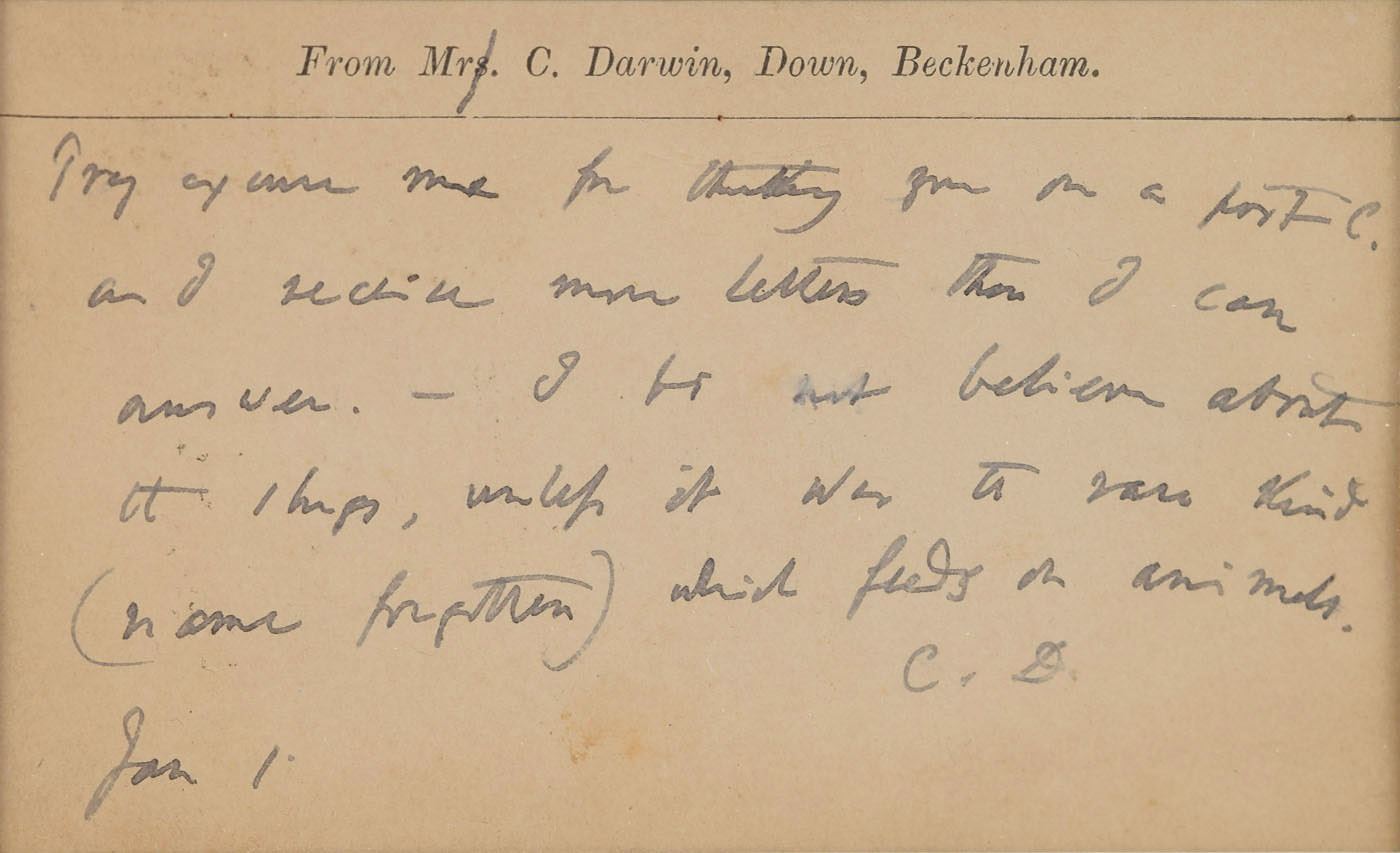 From Mrs. C. Darwin, Down, Beckenham.
Pray excuse me for thanking you on a post C.
as I receive more letters than I can
answer. — I do not believe about
the slugs, unless it was the rare kind
(name forgotten) which feeds on animals.
C. D.
Jan 1.